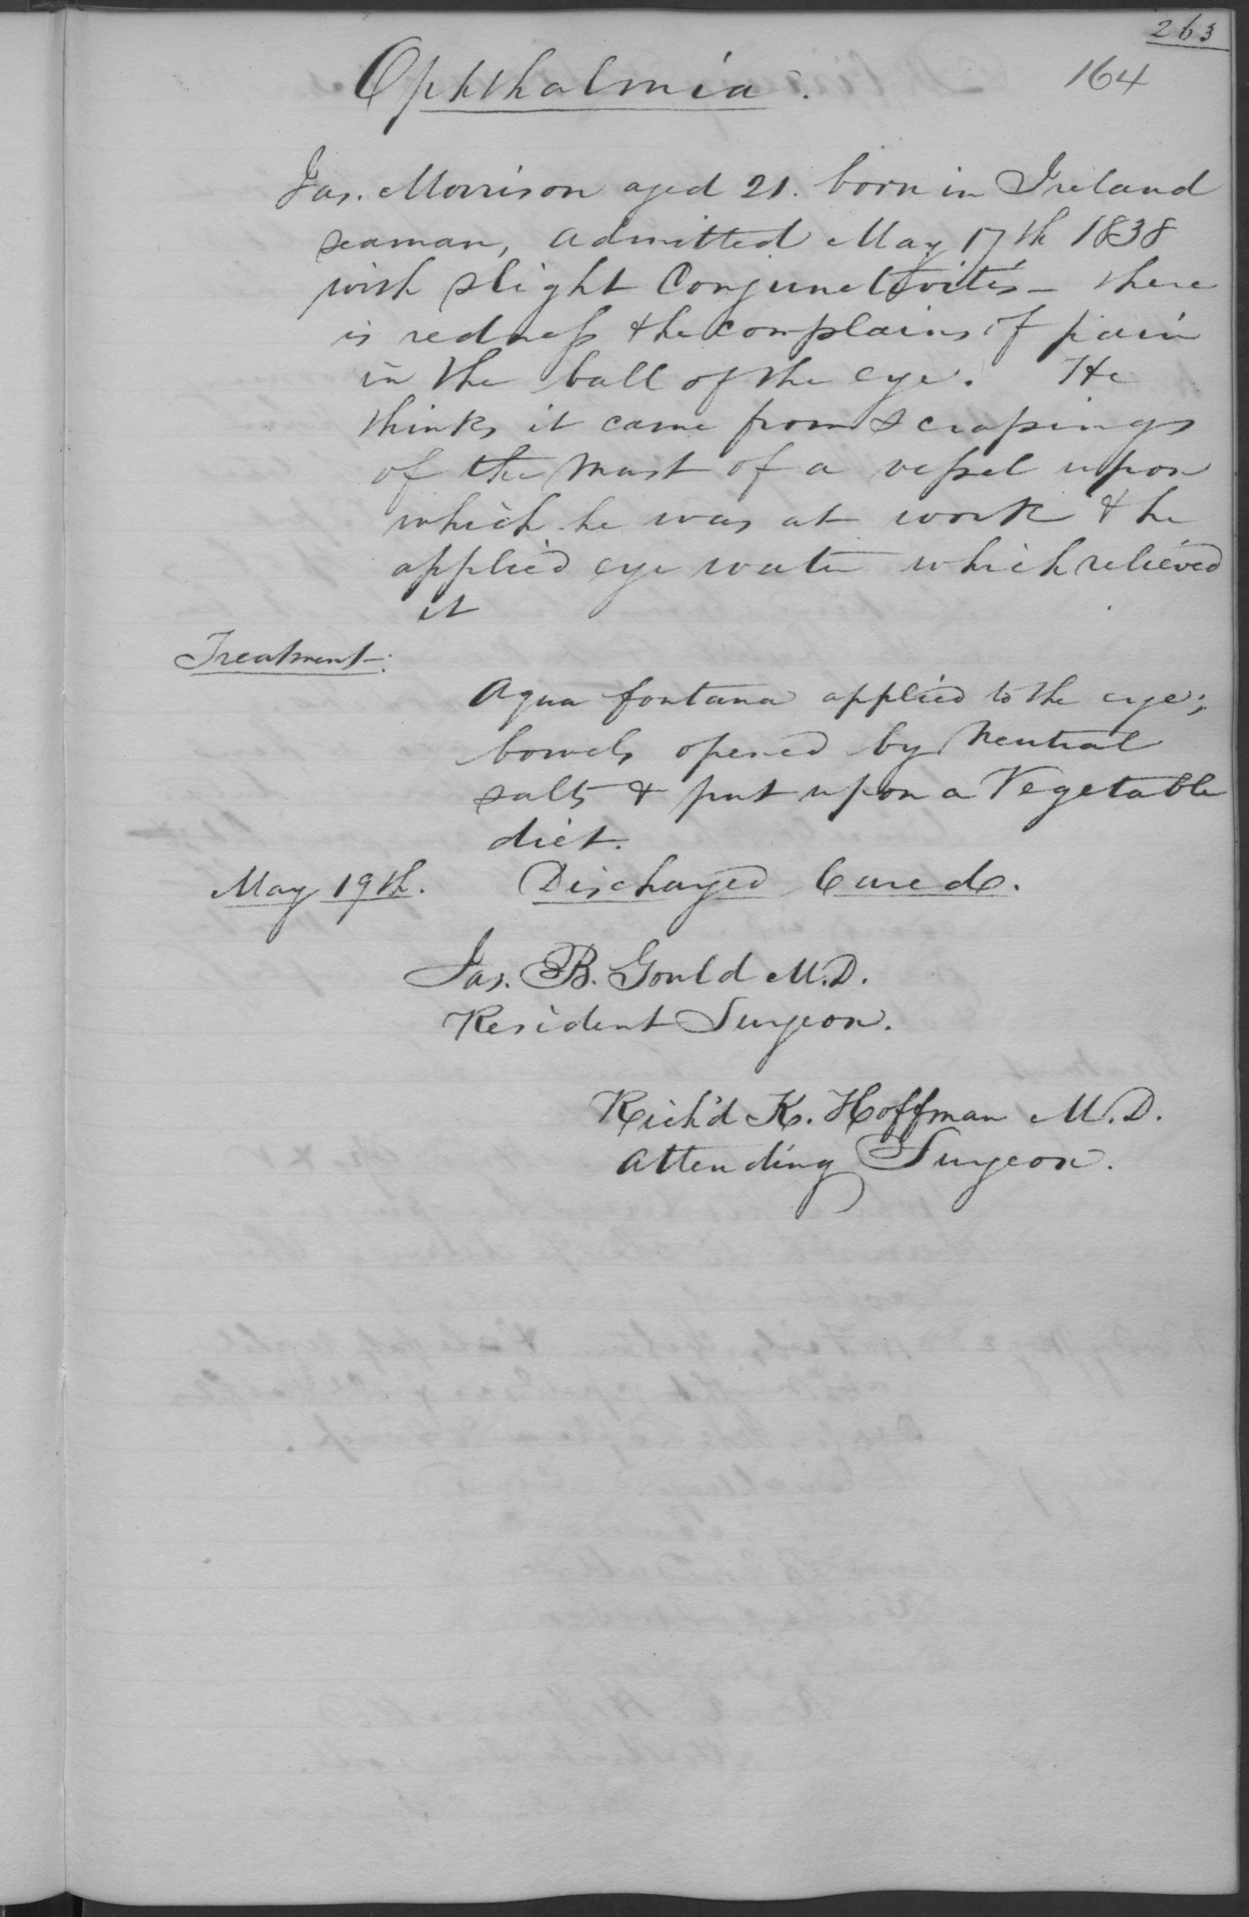 263
164
Ophthalmia.
Jas. Morrison aged 21. born in Ireland
seaman, admitted May 17th 1838
with slight Conjunctivitis - there
is redness & he complains of pain
in the ball of the eye. He
thinks it came from scrapings
of the mast of a vessel upon
which he was at work & he
applied eye water which relieved
it
Treatment.
Aqua fontana applied to the eye;
bowels opened by neutral
salts & put upon a Vegetable
diet.
May 19th. Discharged Cured.
Jas. B. Gould M.D.
Resident Surgeon.
Rich'd K. Hoffman M.D.
Attending Surgeon.